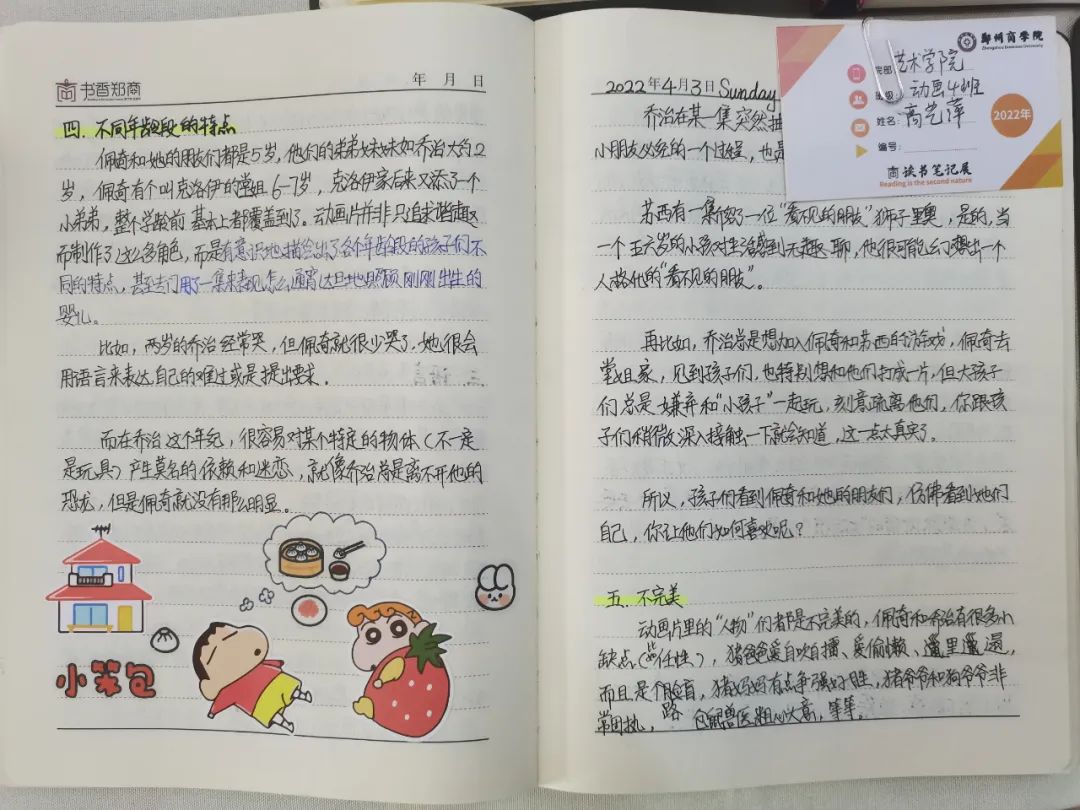 书香郑商
年 月 日
四. 不同年龄段的特点
佩奇和她的朋友们都是5岁，他们的弟弟妹妹如乔治大约2
岁，佩奇有个叫克洛伊的堂姐6-7岁，克洛伊家后来又添了一个
小弟弟，整个学龄前基本上都覆盖到了。动画片并非只追求谐趣
而制作了这么多角色，而是有意识地描绘出了各个年龄段的孩子们不
同的特点，甚至专门用了一集来表现怎么通宵达旦地照顾刚刚出生的
婴儿。
比如，两岁的乔治经常哭，但佩奇就很少哭了.她很会
用语言来表达自己的难过或是提出要求.
而在乔治这个年纪，很容易对某个特定的物体（不一定
是玩具）产生莫名的依赖和迷恋，就像乔治总是离不开他的
恐龙，但是佩奇就没有那么明显。
小笨包
2022年4月3日 Sunday
乔治在某一集突然
小朋友必经的一个过程，也
苏西有一集
了一位“看不见的朋友”狮子里奥，是的，当
一个五六岁的小孩对生活感到无趣、聊，他很可能幻想出一个
人格化的“看不见的朋友”。
再比如，乔治总是想加入佩奇和苏西的游戏，佩奇去
堂姐家，见到孩子们，也特别想和他们打成一片，但大孩子
们总是嫌弃和“小孩子”一起玩，刻意疏离他们，你跟孩
子们稍微深入接触一下就会知道，这一点太真实了。
所以，孩子们看到佩奇和她的朋友们，仿佛看到她们
自己，你让他们如何喜欢呢？
五. 不完美
动画片里的“人物”们都是不完美的，佩奇和乔治有很多小
缺点（些任性），猪爸爸爱自吹自擂、爱偷懒、邋里邋遢，
而且是个脸盲，猪妈妈有点争强好胜，猪爷爷和狗爷爷非
常固执，路 兽医粗心大意，等等。
郑州商学院
Zhengzhou Business University
院部：艺术学院
班级：动画4班
姓名：高艺萍
编号：
2022年
读书笔记展
Reading is the second nature